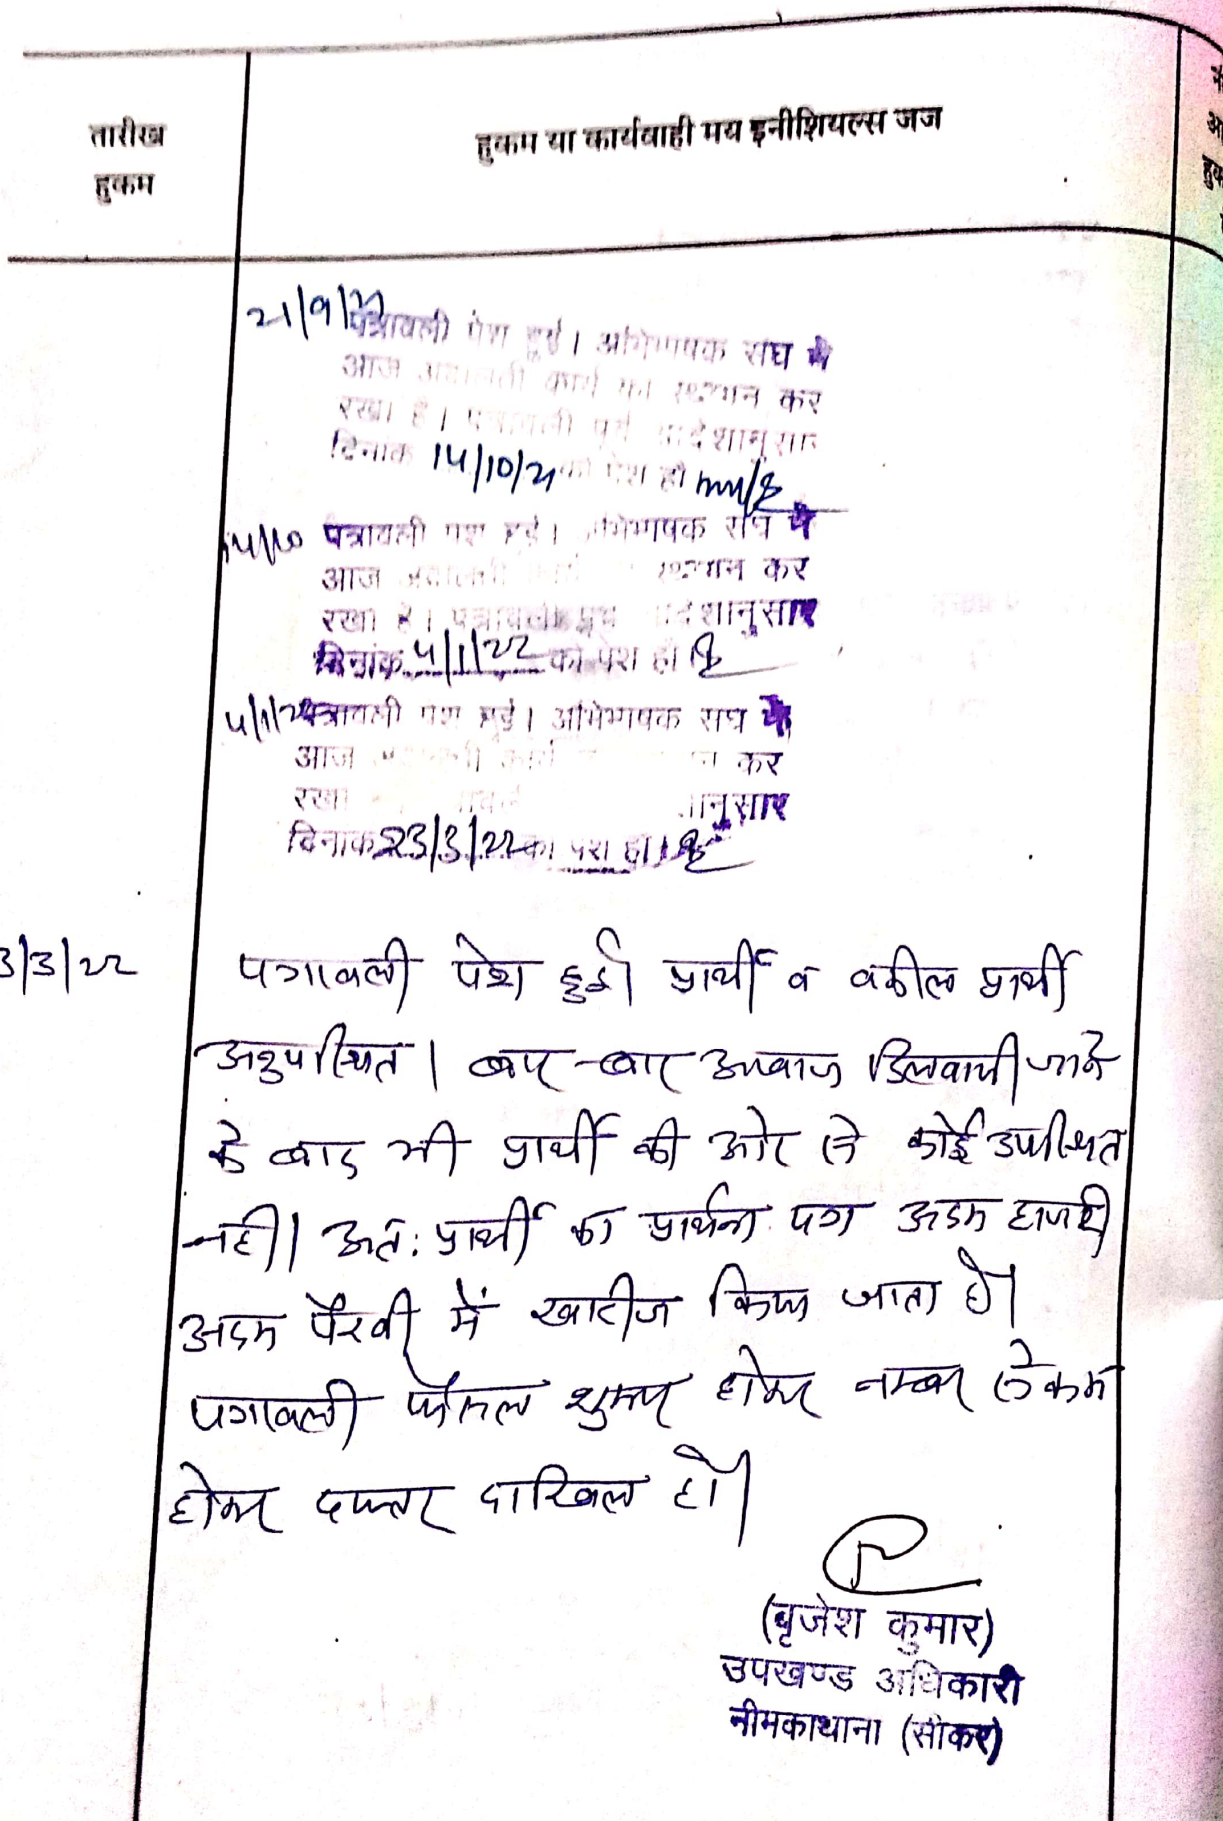 तारीख
हुकम
हुकम या कार्यवाही मय इनीशियल्स जज
21/9/21
पत्रावली पेश हुई। अभिभाषक संघ ने
आज अदालती कार्य का स्थगन कर
रखा है। पत्रावली पूर्व आदेशानुसार
दिनांक 14/10/21 को पेश हो
14/10 पत्रावली पेश हुई। अभिभाषक संघ ने
आज अदालती स्थगन कर
रखा है। पत्रावली पूर्व आदेशानुसार
दिनांक 4/1/22 को पेश हो
4/1/22 पत्रावली पेश हुई। अभिभाषक संघ ने
आज कर
रखा
दिनांक 23/3/22 को पेश हो।
3/3/22 पत्रावली पेश हुई। प्रार्थी व वकील प्रार्थी
अनुपस्थित। बार-बार आवाज दिलवायी जाने
के बाद भी प्रार्थी की ओर से कोई उपस्थित
नही। अत: प्रार्थी का प्रार्थना पत्र अदम हाजरी
अदम पैरवी में खारीज किया जाता है।
पत्रावली फैसल शुमार होकर नम्बर से कम
होकर दफ्तर दाखिल हो।
(बृजेश कुमार)
उपखण्ड अधिकारी
नीमकाथाना (सीकर)